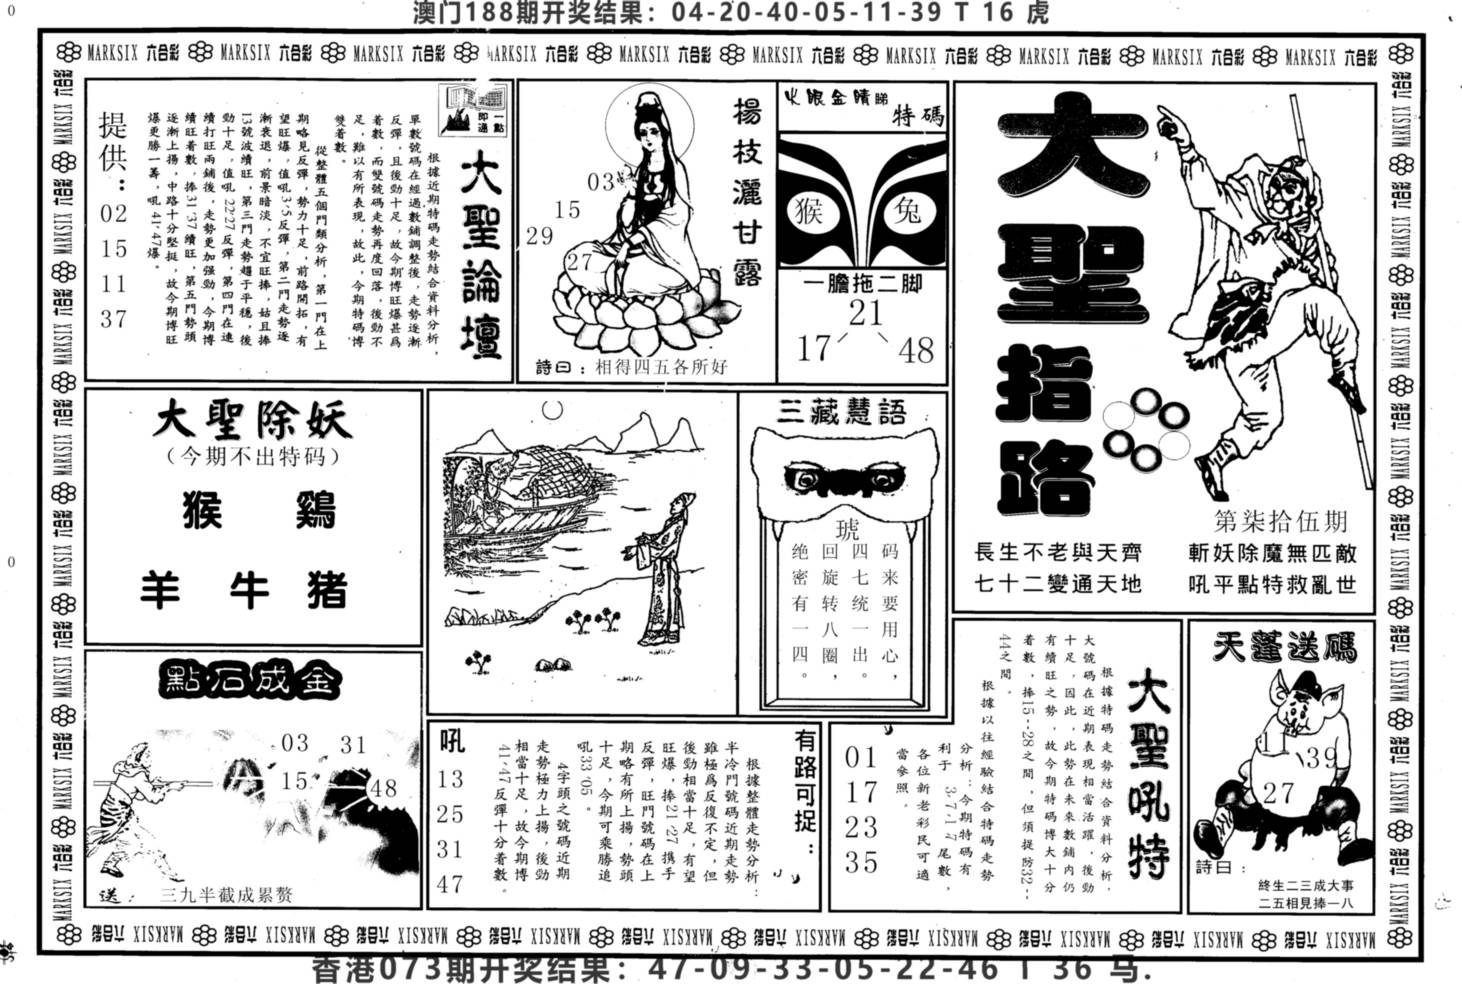 澳门188期开奖结果：04-20-40-05-11-39 T 16 虎
MARKSIX 六合彩 MARKSIX 六合彩 MARKSIX 六合彩 MARKSIX 六合彩 MARKSIX 六合彩 MARKSIX 六合彩 MARKSIX 六合彩 MARKSIX 六合彩 MARKSIX 六合彩 MARKSIX 六合彩
大聖指路
第柒拾伍期
長生不老與天齊
七十二變通天地
斬妖除魔無匹敵
吼平點特救亂世
火眼金睛睇
特碼
猴
兔
一膽拖二脚
21
17
48
楊枝灑甘露
03
15
29
27
詩曰：相得四五各所好
一點即通
大聖論壇
根據近期特碼走勢結合資料分析，
單數號碼在經過數鋪調整後，走勢逐漸
反彈，且後勁十足，故今期博旺爆甚爲
着數，而雙號碼走勢再度回落，後勁不
足，難以有所表現，故此，今期特碼博
雙着數。
從整體五個門類分析，第一門在上
期略見反彈，勢力十足，前路開拓，有
望旺爆，值吼3·5反彈，第二門走勢逐
漸衰退，前景暗淡，不宜旺捧，姑且捧
13號波續旺，第三門走勢趨于平穩，後
勁十足，值吼22·27反彈，第四門在連
續打旺兩鋪後，走勢更加强勁，今期博
續旺着數，捧31·37續旺，第五門勢頭
逐漸上揚，中路十分堅挺，故今期博旺
爆更勝一籌，吼41·47爆。
提供：
02
15
11
37
大聖除妖
（今期不出特码）
猴 鷄
羊 牛 猪
三藏慧語
琥
码来要用心，
四七统一出。
回旋转八圈，
绝密有一四。
點石成金
03
31
15
48
送：三九半截成累赘
有路可捉：
根據整體走勢分析：
半冷門號碼近期走勢
雖極爲反復不定，但
後勁相當十足，有望
旺爆，捧21·27携手
反彈，旺門號碼在上
期略有所上揚，勢頭
十足，今期可乘勝追
吼33·05。
4字頭之號碼近期
走勢極力上揚，後勁
相當十足，故今期博
41·47反彈十分着數。
吼
13
25
31
47
大聖吼特
根據特碼走勢結合資料分析，
大號碼在近期表現相當活躍，後勁
十足，因此，此勢在未來數鋪内仍
有續旺之勢，故今期特碼博大十分
着數，捧15--28之間，但須提防32--
44之間。
根據以往經驗結合特碼走勢
分析：今期特碼有
利于3·7·1·7尾數，
各位新老彩民可適
當參照。
01
17
23
35
天蓬送碼
11
39
27
詩曰：
終生二三成大事
二五相見捧一八
香港073期开奖结果：47-09-33-05-22-46 T 36 马.